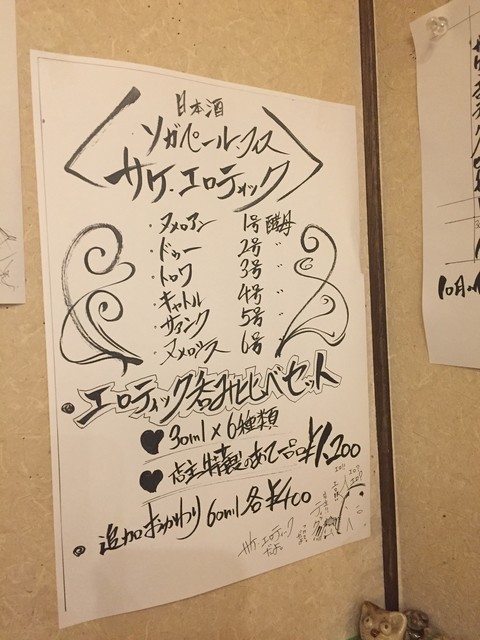 日本酒
ソガペールエフィス
サケ・エロティック
・ヌメロアン 1号酵母
・ドゥー 2号 〃
・トロワ 3号 〃
・キャトル 4号 〃
・サァンク 5号 〃
・ヌメロシス 6号
・エロティック呑み比べセット
♥ 30ml×6種類
♥ 店主特製のあて一品 ¥1,200
・追加おかわり 60ml 各¥400
サケ・エロティック
だよ。
10月